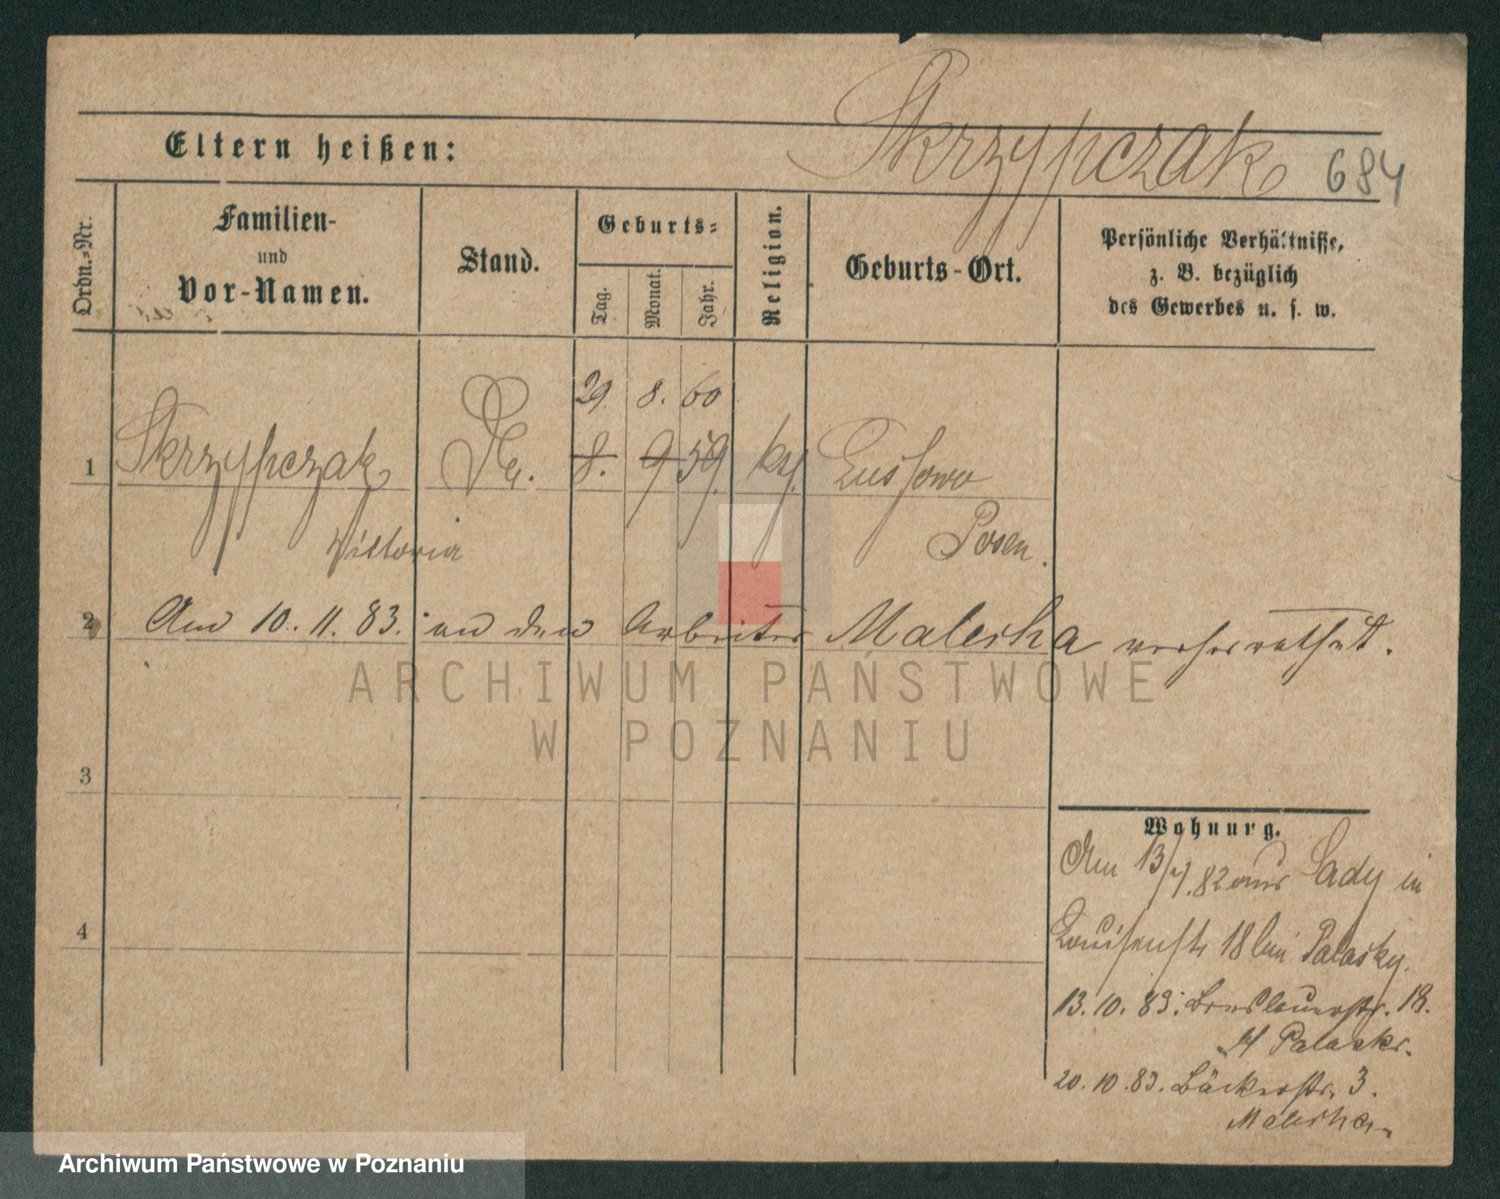 Skrzypczak 684
Eltern heißen:
Ordn.-Nr.
Familien-
und
Vor-Namen.
Stand.
Geburts-
Tag.
Monat.
Jahr.
Religion.
Geburts-Ort.
Persönliche Verhältnisse,
z. B. bezüglich
des Gewerbes u. s. w.
29. 8. 60
1 Skrzypczak 8. 9 59. kg. Lussowo
Viktoria Posen.
2 Am 10. 11. 83. an den Arbeiter Maleska verheirathet.
ARCHIWUM PAŃSTWOWE
W POZNANIU
3
4
Wohnung.
Am 13/7. 82 aus Sady in
Louisenstr 18 bei Palasky.
13. 10. 83. Breslauerstr. 18.
Palaski.
20. 10. 83. Bäckerstr. 3.
Maleska.
Archiwum Państwowe w Poznaniu